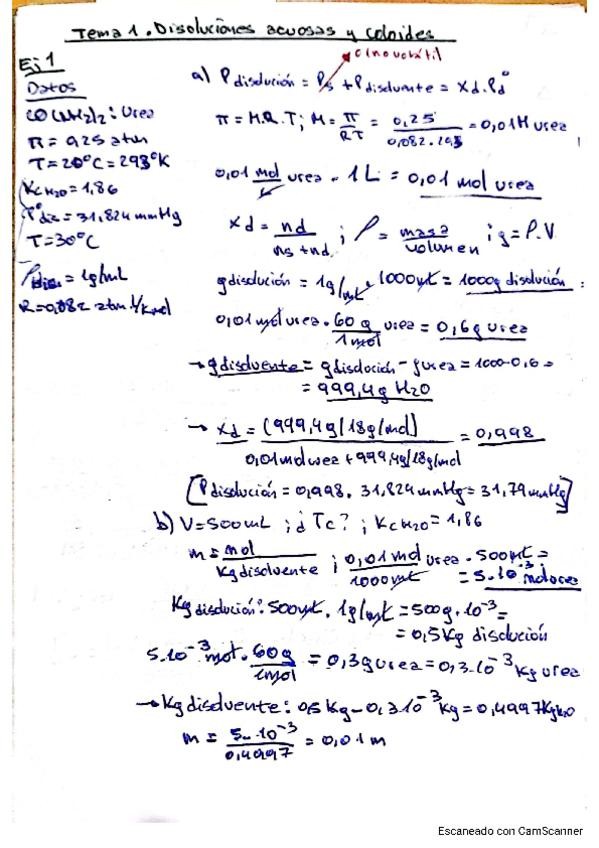 Tema 1. Disoluciones acuosas y coloides
Ej 1
Datos
CO(NH2)2: Urea
π = 0,25 atm
T = 20°C = 293°K
Kc H2O = 1,86
P°dis = 31,824 mmHg
T = 30°C
ρ disol = 1g/mL
R = 0,082 atm·l/K·mol
no volátil
a) P disolución = Ps + P disolvente = Xd . Pd°
π = M.R.T ; M = π/RT = 0,25/0,082.293 = 0,01M urea
0,01 mol/L urea . 1L = 0,01 mol urea
Xd = nd/ns + nd ; ρ = masa/volumen ; g = ρ.V
g disolución = 1g/mL . 1000mL = 1000g disolución
0,01 mol urea . 60 g/1 mol urea = 0,6g urea
→ g disolvente = g disolución - g urea = 1000-0,6 =
= 999,4g H2O
→ Xd = (999,4g/18g/mol)/0,01 mol urea + 999,4g/18g/mol = 0,998
[P disolución = 0,998 . 31,824 mmHg = 31,79 mmHg]
b) V = 500mL ; ¿Tc? ; Kc H2O = 1,86
m = mol/Kg disolvente ; 0,01 mol urea/1000mL . 500mL =
= 5.10⁻³ moles
Kg disolución: 500mL . 1g/mL = 500g . 10⁻³ =
= 0,5 Kg disolución
5.10⁻³ mol . 60g/1mol = 0,3g urea = 0,3.10⁻³ Kg urea
→ Kg disolvente: 0,5 Kg - 0,3.10⁻³ Kg = 0,4997 Kg H2O
m = 5.10⁻³/0,4997 = 0,01 m
Escaneado con CamScanner